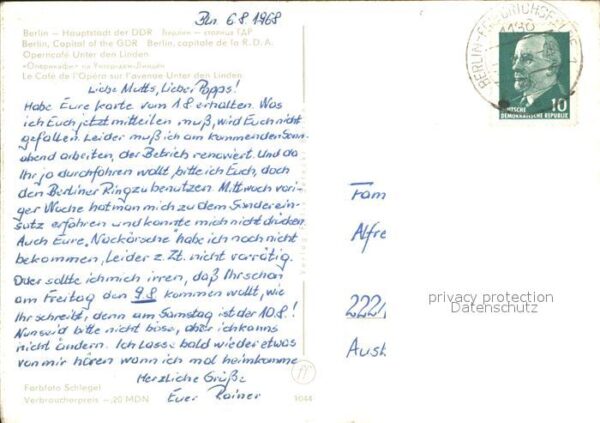 Bln 6.8.1968
Berlin – Hauptstadt der DDR Берлин – столица ГДР
Berlin, Capital of the GDR Berlin, capitale de la R.D.A.
Operncafé Unter den Linden
«Оперкафе» на Унтер-ден-Линден
Le Café de l'Opéra sur l'avenue Unter den Linden
Liebe Mutts, Lieber Papps!
Habe Eure Karte vom 1.8 erhalten. Was
ich Euch jetzt mitteilen muß, wird Euch nicht
gefallen. Leider muß ich am kommenden Sonn-
abend arbeiten, der Betrieb renoviert. Und da
Ihr ja durchfahren wollt, bitte ich Euch, doch
den Berliner Ring zu benutzen. Mittwoch vori-
ger Woche hat man mich zu dem Sonderein-
satz erfahren und konnte mich nicht drücken.
Auch Eure "Nackörsche" habe ich noch nicht
bekommen, Leider z. Zt. nicht vorrätig.
Oder sollte ich mich irren, daß Ihr schon
am Freitag den 9.8 kommen wollt, wie
Ihr schreibt, denn am Samstag ist der 10.8.!
Nun seid bitte nicht böse, aber ich kanns
nicht ändern. Ich lasse bald wieder etwas
von mir hören wann ich mal heimkomme
Herzliche Grüße
Euer Rainer
Farbfoto Schlegel
Verbraucherpreis –,20 MDN
Verlag
BERLIN-FRIEDRICHSFELDE 1
DEUTSCHE 10
DEMOKRATISCHE REPUBLIK
Fam
Alfre
222
Aust
privacy protection
Datenschutz